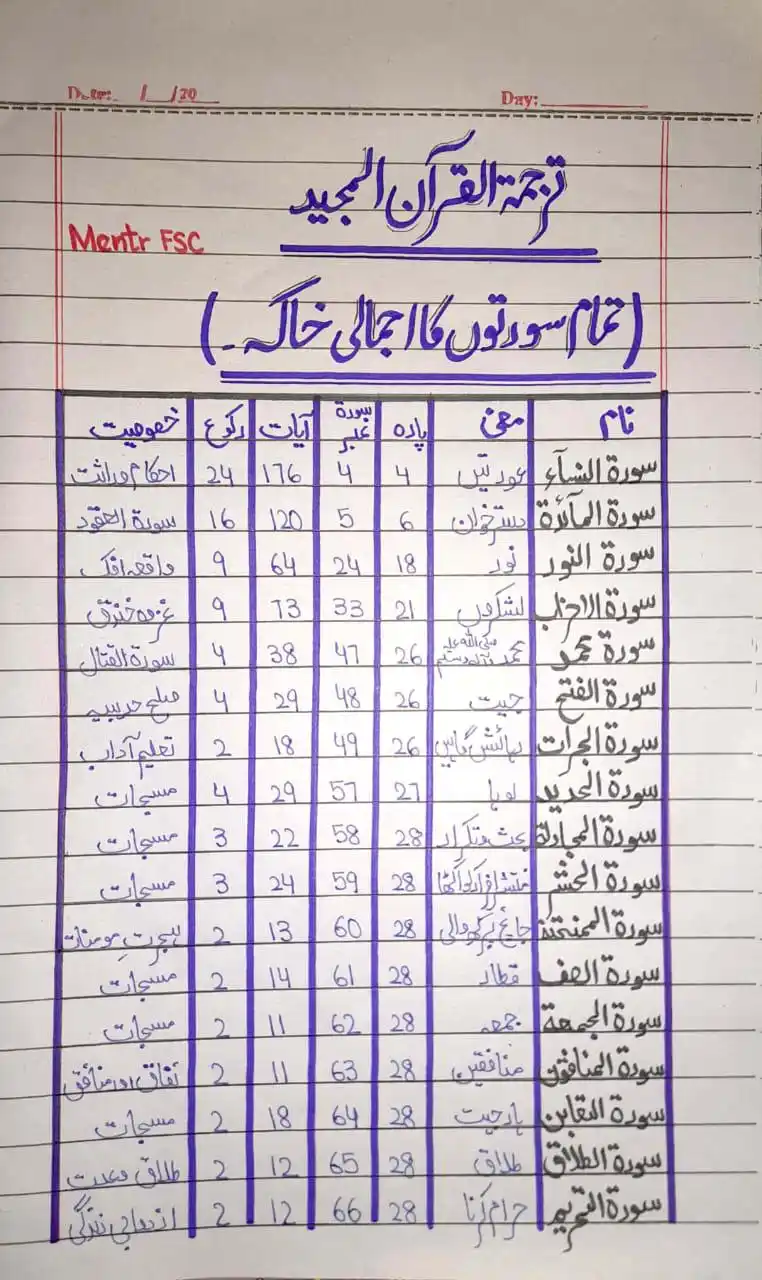 Date: / /20 Day:
ترجمۃ القرآن المجید
Mentr FSC
(تمام سورتوں کا اجمالی خاکہ۔)
نام معنی پارہ سورۃ نمبر آیات رکوع خصوصیت
سورۃ النسآء عورتیں 4 4 176 24 احکام وراثت
سورۃ المآئدۃ دسترخوان 6 5 120 16 سورۃ العقود
سورۃ النور نور 18 24 64 9 واقعہ افک
سورۃ الاحزاب لشکروں 21 33 73 9 غزوہ خندق
سورۃ محمد محمد صلی اللہ علیہ وآلہ وسلم 26 47 38 4 سورۃ القتال
سورۃ الفتح جیت 26 48 29 4 صلح حدیبیہ
سورۃ الحجرات رہائش گاہیں 26 49 18 2 تعلیم آداب
سورۃ الحدید لوہا 27 57 29 4 مسبحات
سورۃ المجادلۃ بحث و تکرار 28 58 22 3 مسبحات
سورۃ الحشر 28 59 24 3 مسبحات
سورۃ الممتحنہ والی 28 60 13 2 ہجرتِ مومنات
سورۃ الصف قطار 28 61 14 2 مسبحات
سورۃ الجمعۃ جمعہ 28 62 11 2 مسبحات
سورۃ المنافقون منافقین 28 63 11 2 نفاق اور منافق
سورۃ التغابن ہار جیت 28 64 18 2 مسبحات
سورۃ الطلاق طلاق 28 65 12 2 طلاق و عدت
سورۃ التحریم حرام کرنا 28 66 12 2 ازدواجی زندگی